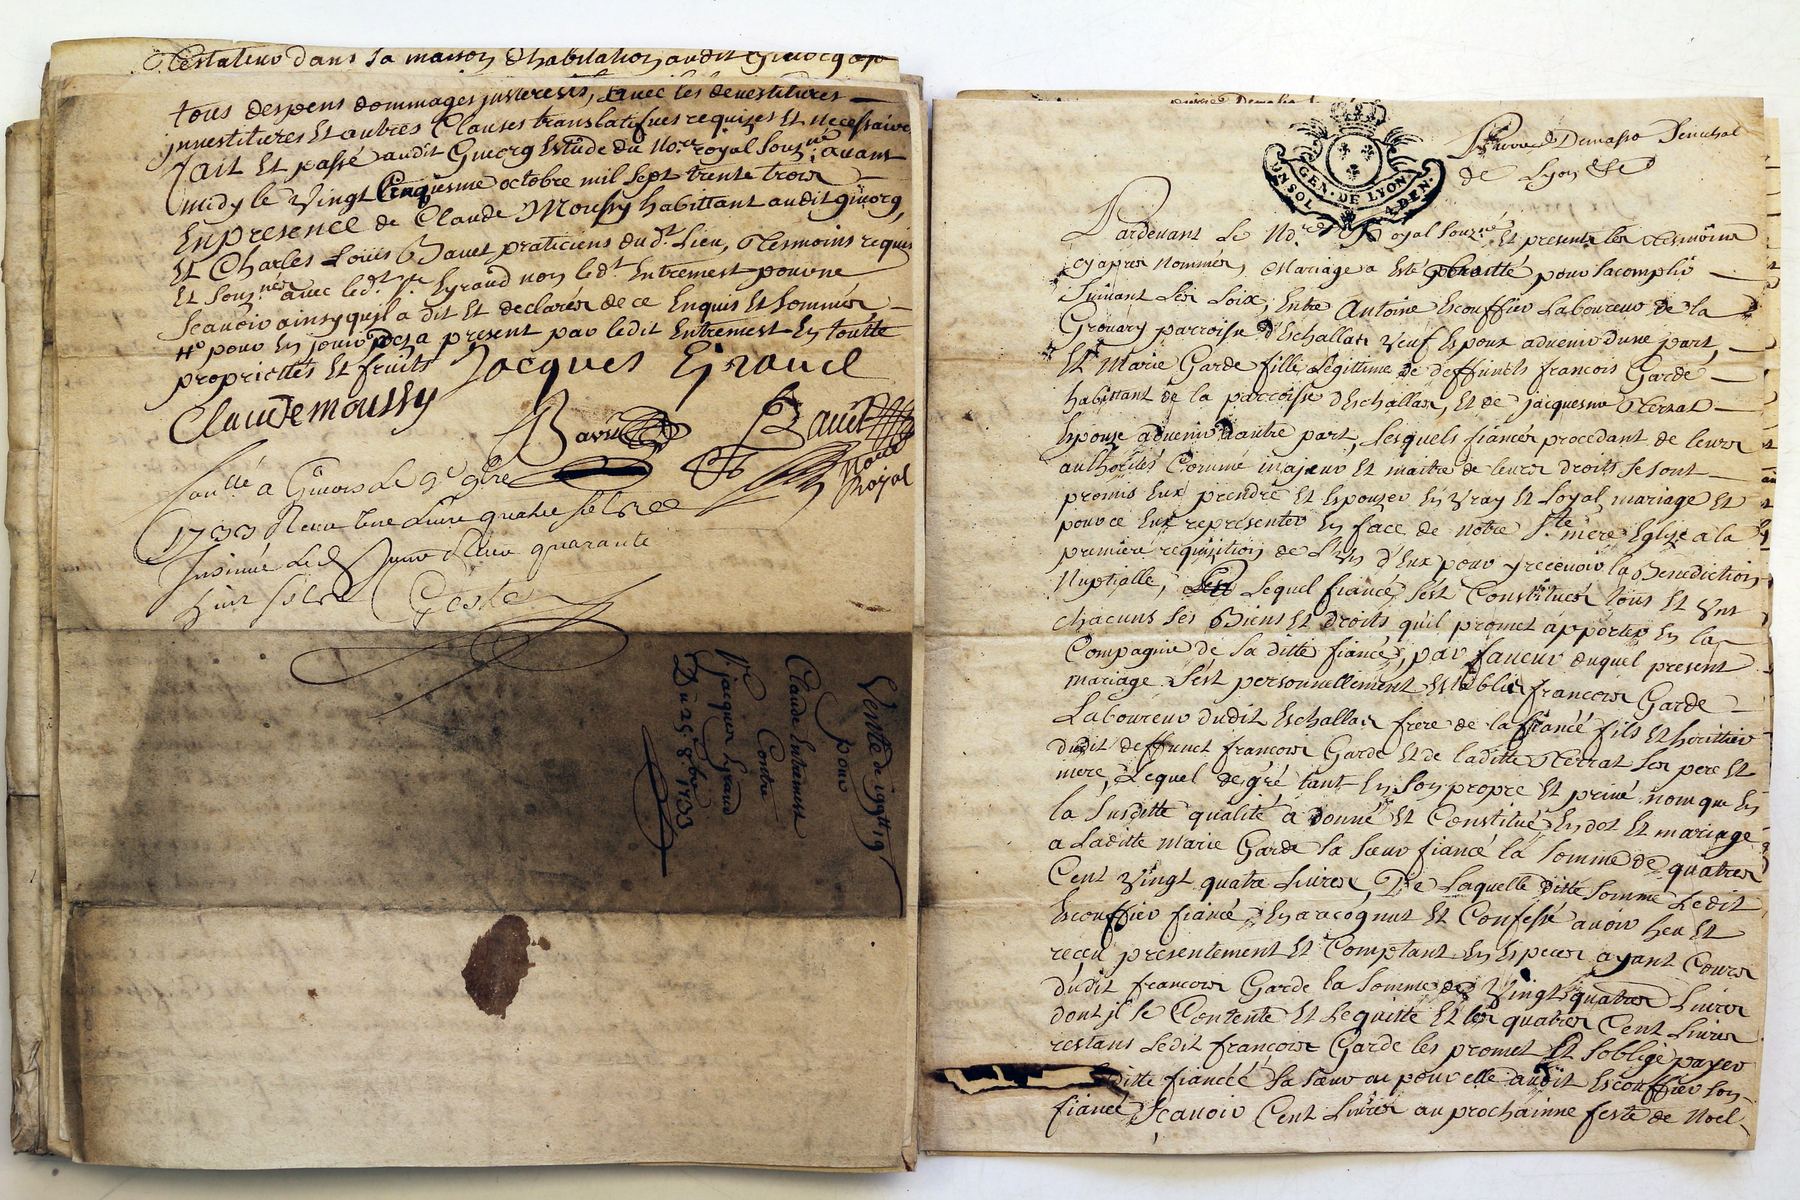 Testateur dans sa maison d'habitation audit Givors
tous despens dommages jnterests, Avec les devestitures
jnvestitures Et autres Clauses translatifves requizes Et necessaires
fait Et passé audit Givorg Estude du No.re royal Souz.né avant
midy le vingt Cinquiesme octobre mil sept trente trois
En presence de Claude Moussy habittant audit givorg,
Et Charles Loüis Bauet praticiens du d.t Lieu, Tesmoins requis
Et Souz.nés avec led.t S.r Gyraud non led.t Entremest pour ne
sçavoir ainsy quil a dit Et declaré de ce Enquis Et sommé
pour En jouir dez a present par ledit Entremest En toutte
propriettés Et fruits Jacques Giraud
Claude moussy
Bauet
No.re Royal
Con.llé a Givors Le 9.e 9bre
1733 Receu
Insinué Led. jour Receu quarante
huit sols
Geste
Vente de
pour
Claude Entremest
Contre
S.r jacques Gyraud
Du 25 8bre 1733
GEN. DE LYON
UN SOL 4 DEN.
de Lyon
Pardevant Le No.re Royal Souz.né Et presents les Tesmoins
cy apres nommés, Mariage a Esté traitté pour s'acomplir
suivant les Loix, Entre Antoine Escoffier Laboureur de la
Grouary parroisse d'Eschallas veuf Espoux advenir d'une part,
Et Marie Garde fille Legittime de deffuncts françois Garde
habittant de la parroisse d'Eschallas, Et de jacquesme Terrat
Espouse advenir d'autre part, lesquels fiancés procedant de leurs
authorités comme majeur Et maitre de leurs droits se sont
promis Eux prendre Et Espouzer En vray Et Loyal mariage Et
pour ce Eux representer En face de notre S.te mere Eglize a la
premiere requizition de L'un d'Eux pour y recevoir la Benediction
Nuptialle, Lequel fiancé s'est Constitués tous Et uns
chacuns ses Biens Et droits qu'il promet apporter En la
Compagnie de sa ditte fiancée, par faveur duquel present
mariage s'est personnellement Establis françois Garde
Laboureur dudit Eschallas frere de la fiancé fils Et heritier
dudit deffunct françois Garde Et de laditte Terrat ses pere Et
mere, Lequel de gré tant En son propre Et privé nom que En
la susditte qualité, a donné Et Constitué En dot Et mariage
a Laditte marie Garde sa sœur fiancé la somme de quatres
Cent vingt quatre Livres, De Laquelle ditte somme Ledit
Escouffier fiancé, En a recognut Et Confessé avoir heu Et
receu presentement Et Comptant En Especes ayant Cours
dudit françois Garde la somme de vingt quatres Livres
dont jl se Contente Et Le quitte Et les quatres Cent Livres
restans Ledit françois Garde les promet Et s'oblige payer
ditte fiancée sa sœur ou pour elle audit Escouffier son
fiancé, sçavoir Cent Livres au prochainne feste de Noel